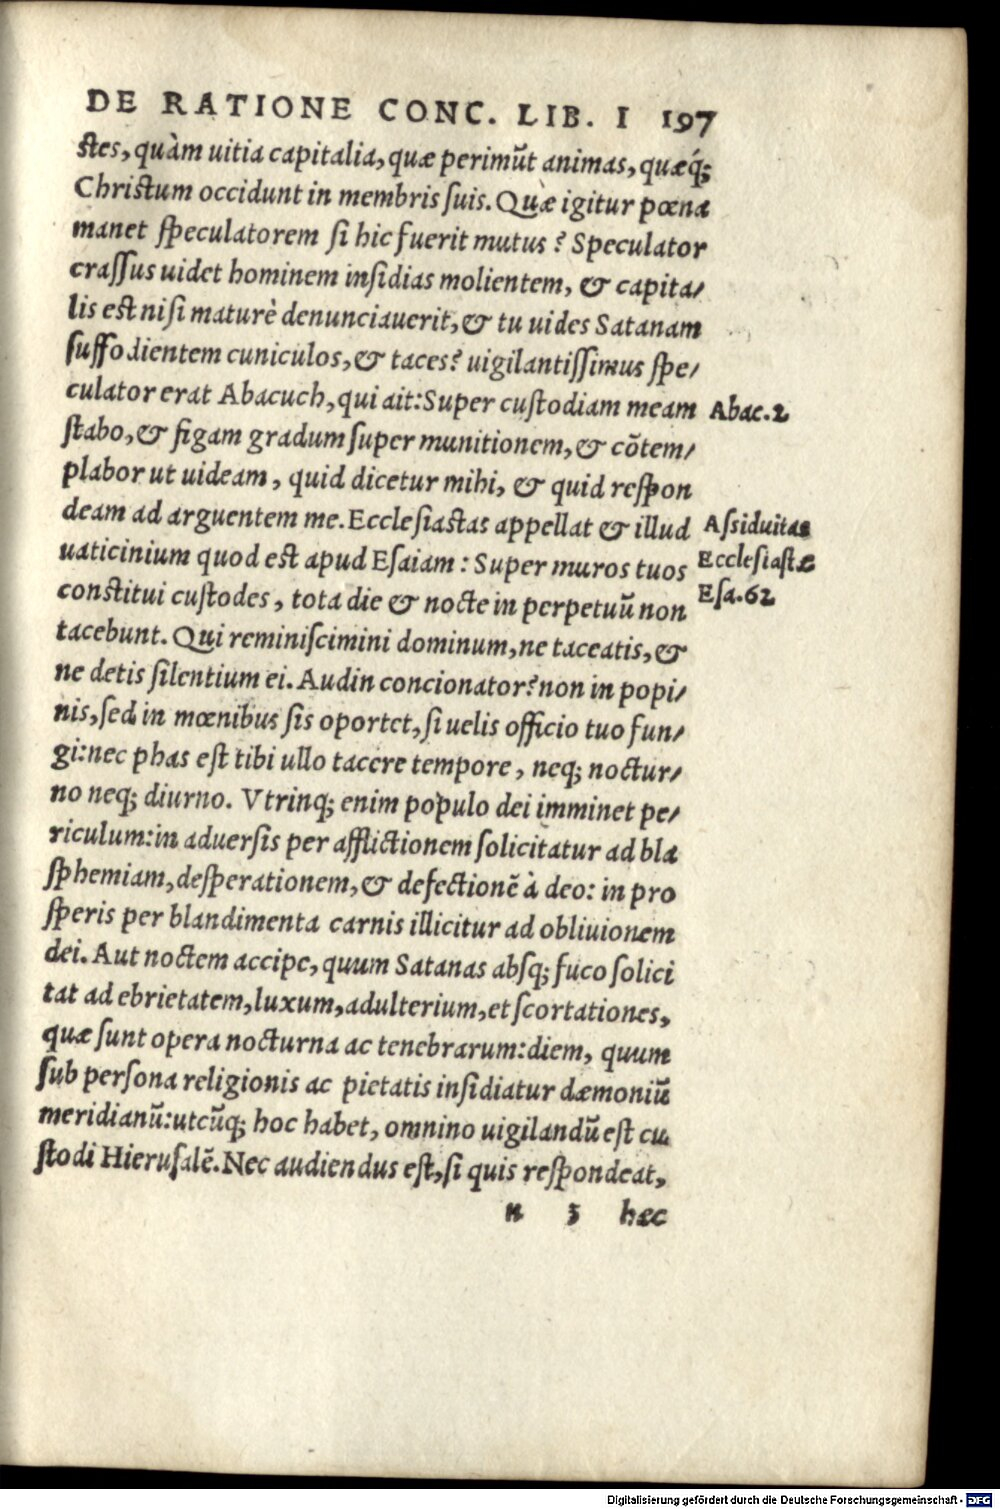 DE RATIONE CONC. LIB. I 197
ſtes, quàm uitia capitalia, quæ perimũt animas, quæq́;
Chriſtum occidunt in membris ſuis. Quæ igitur pœna
manet ſpeculatorem ſi hic fuerit mutus? Speculator
craſſus uidet hominem inſidias molientem, & capita/
lis est niſi maturè denunciauerit, & tu uides Satanam
ſuffodientem cuniculos, & taces? uigilantiſſimus ſpe/
culator erat Abacuch, qui ait: Super cuſtodiam meam
Abac. 2
ſtabo, & figam gradum ſuper munitionem, & cõtem/
plabor ut uideam, quid dicetur mihi, & quid reſpon
deam ad arguentem me. Eccleſiaſtas appellat & illud
Aſſiduitas
uaticinium quod est apud Eſaiam: Super muros tuos
Eccleſiaſtæ
conſtitui cuſtodes, tota die & nocte in perpetuũ non
Eſa. 62
tacebunt. Qui reminiſcimini dominum, ne taceatis, &
ne detis ſilentium ei. Audin concionator? non in popi/
nis, ſed in mœnibus ſis oportet, ſi uelis officio tuo fun/
gi: nec phas eſt tibi ullo tacere tempore, neq; noctur/
no neq; diurno. Vtrinq; enim populo dei imminet pe/
riculum: in aduerſis per afflictionem ſolicitatur ad bla
ſphemiam, deſperationem, & defectionẽ à deo: in pro
ſperis per blandimenta carnis illicitur ad obliuionem
dei. Aut noctem accipe, quum Satanas absq; fuco ſolici
tat ad ebrietatem, luxum, adulterium, et ſcortationes,
quæ ſunt opera nocturna ac tenebrarum: diem, quum
ſub perſona religionis ac pietatis inſidiatur dæmoniũ
meridianũ: utcũq; hoc habet, omnino uigilandũ eſt cu
ſtodi Hieruſalẽ. Nec audiendus eſt, ſi quis reſpondeat,
n 3 hæc
Digitalisierung gefördert durch die Deutsche Forschungsgemeinschaft - DFG